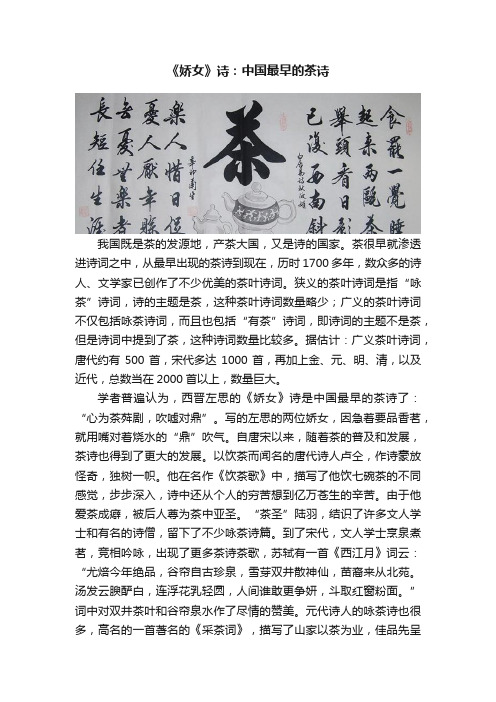 《娇女》诗：中国最早的茶诗
食罷一覺睡
起来兩甌茶
舉頭看日影
已復西南斜
茶
樂人惜日促
憂人厭年賒
无憂无樂者
長短任生涯
我国既是茶的发源地，产茶大国，又是诗的国家。茶很早就渗透
进诗词之中，从最早出现的茶诗到现在，历时1700多年，数众多的诗
人、文学家已创作了不少优美的茶叶诗词。狭义的茶叶诗词是指“咏
茶”诗词，诗的主题是茶，这种茶叶诗词数量略少；广义的茶叶诗词
不仅包括咏茶诗词，而且也包括“有茶”诗词，即诗词的主题不是茶，
但是诗词中提到了茶，这种诗词数量比较多。据估计：广义茶叶诗词，
唐代约有 500 首，宋代多达 1000 首，再加上金、元、明、清，以及
近代，总数当在2000首以上，数量巨大。
学者普遍认为，西晋左思的《娇女》诗是中国最早的茶诗了：
“心为茶荈剧，吹嘘对鼎”。写的左思的两位娇女，因急着要品香茗，
就用嘴对着烧水的“鼎”吹气。自唐宋以来，随着茶的普及和发展，
茶诗也得到了更大的发展。以饮茶而闻名的唐代诗人卢仝，作诗豪放
怪奇，独树一帜。他在名作《饮茶歌》中，描写了他饮七碗茶的不同
感觉，步步深入，诗中还从个人的穷苦想到亿万苍生的辛苦。由于他
爱茶成癖，被后人尊为茶中亚圣。“茶圣”陆羽，结识了许多文人学
士和有名的诗僧，留下了不少咏茶诗篇。到了宋代，文人学士烹泉煮
茗，竞相吟咏，出现了更多茶诗茶歌，苏轼有一首《西江月》词云：
“尤焙今年绝品，谷帘自古珍泉，雪芽双井散神仙，苗裔来从北苑。
汤发云腴酽白，连浮花乳轻圆，人间谁敢更争妍，斗取红窗粉面。”
词中对双井茶叶和谷帘泉水作了尽情的赞美。元代诗人的咏茶诗也很
多，高名的一首著名的《采茶词》，描写了山家以茶为业，佳品先呈